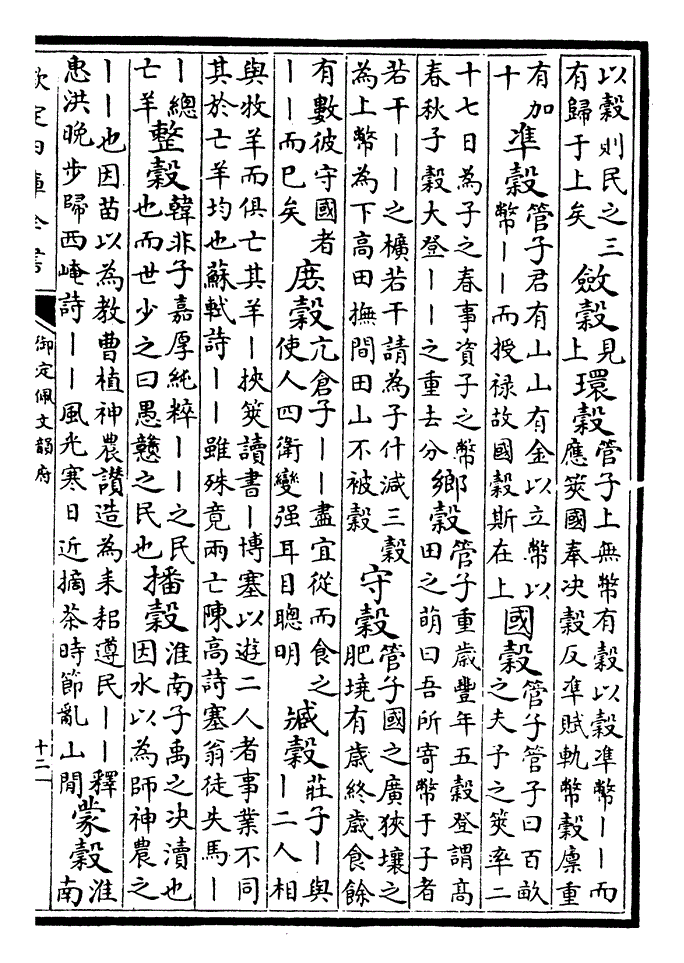 以穀則民之三
有歸于上矣
斂穀
見
上
環穀
管子上無幣有穀以穀準幣——而
應筴國奉决穀反準賦軌幣穀廩重
有加
十
準穀
管子君有山山有金以立幣以
幣——而授禄故國穀斯在上
國穀
管子管子曰百畝
之夫子之筴率二
十七日為子之春事資子之幣
春秋子穀大登——之重去分
鄉穀
管子重歲豐年五穀登謂高
田之萌曰吾所寄幣于子者
若干——之櫎若干請為子什減三穀
為上幣為下高田撫間田山不被穀
守穀
管子國之廣狹壤之
肥墝有歲終歲食餘
有數彼守國者
——而已矣
庶穀
亢倉子——盡宜從而食之
使人四衛變强耳目聰明
臧穀
莊子—與
—二人相
與牧羊而俱亡其羊—挾筴讀書—博塞以遊二人者事業不同
其於亡羊均也蘇軾詩——雖殊竟兩亡陳高詩塞翁徒失馬—
—總
亡羊
整穀
韓非子嘉厚純粹——之民
也而世少之曰愚戇之民也
播穀
淮南子禹之决瀆也
因水以為師神農之
——也因苗以為教曹植神農讃造為耒耜遵民——釋
惠洪晚步歸西崦詩——風光寒日近摘茶時節亂山間
蒙穀
淮
南
欽定四庫全書
御定佩文韻府
十二